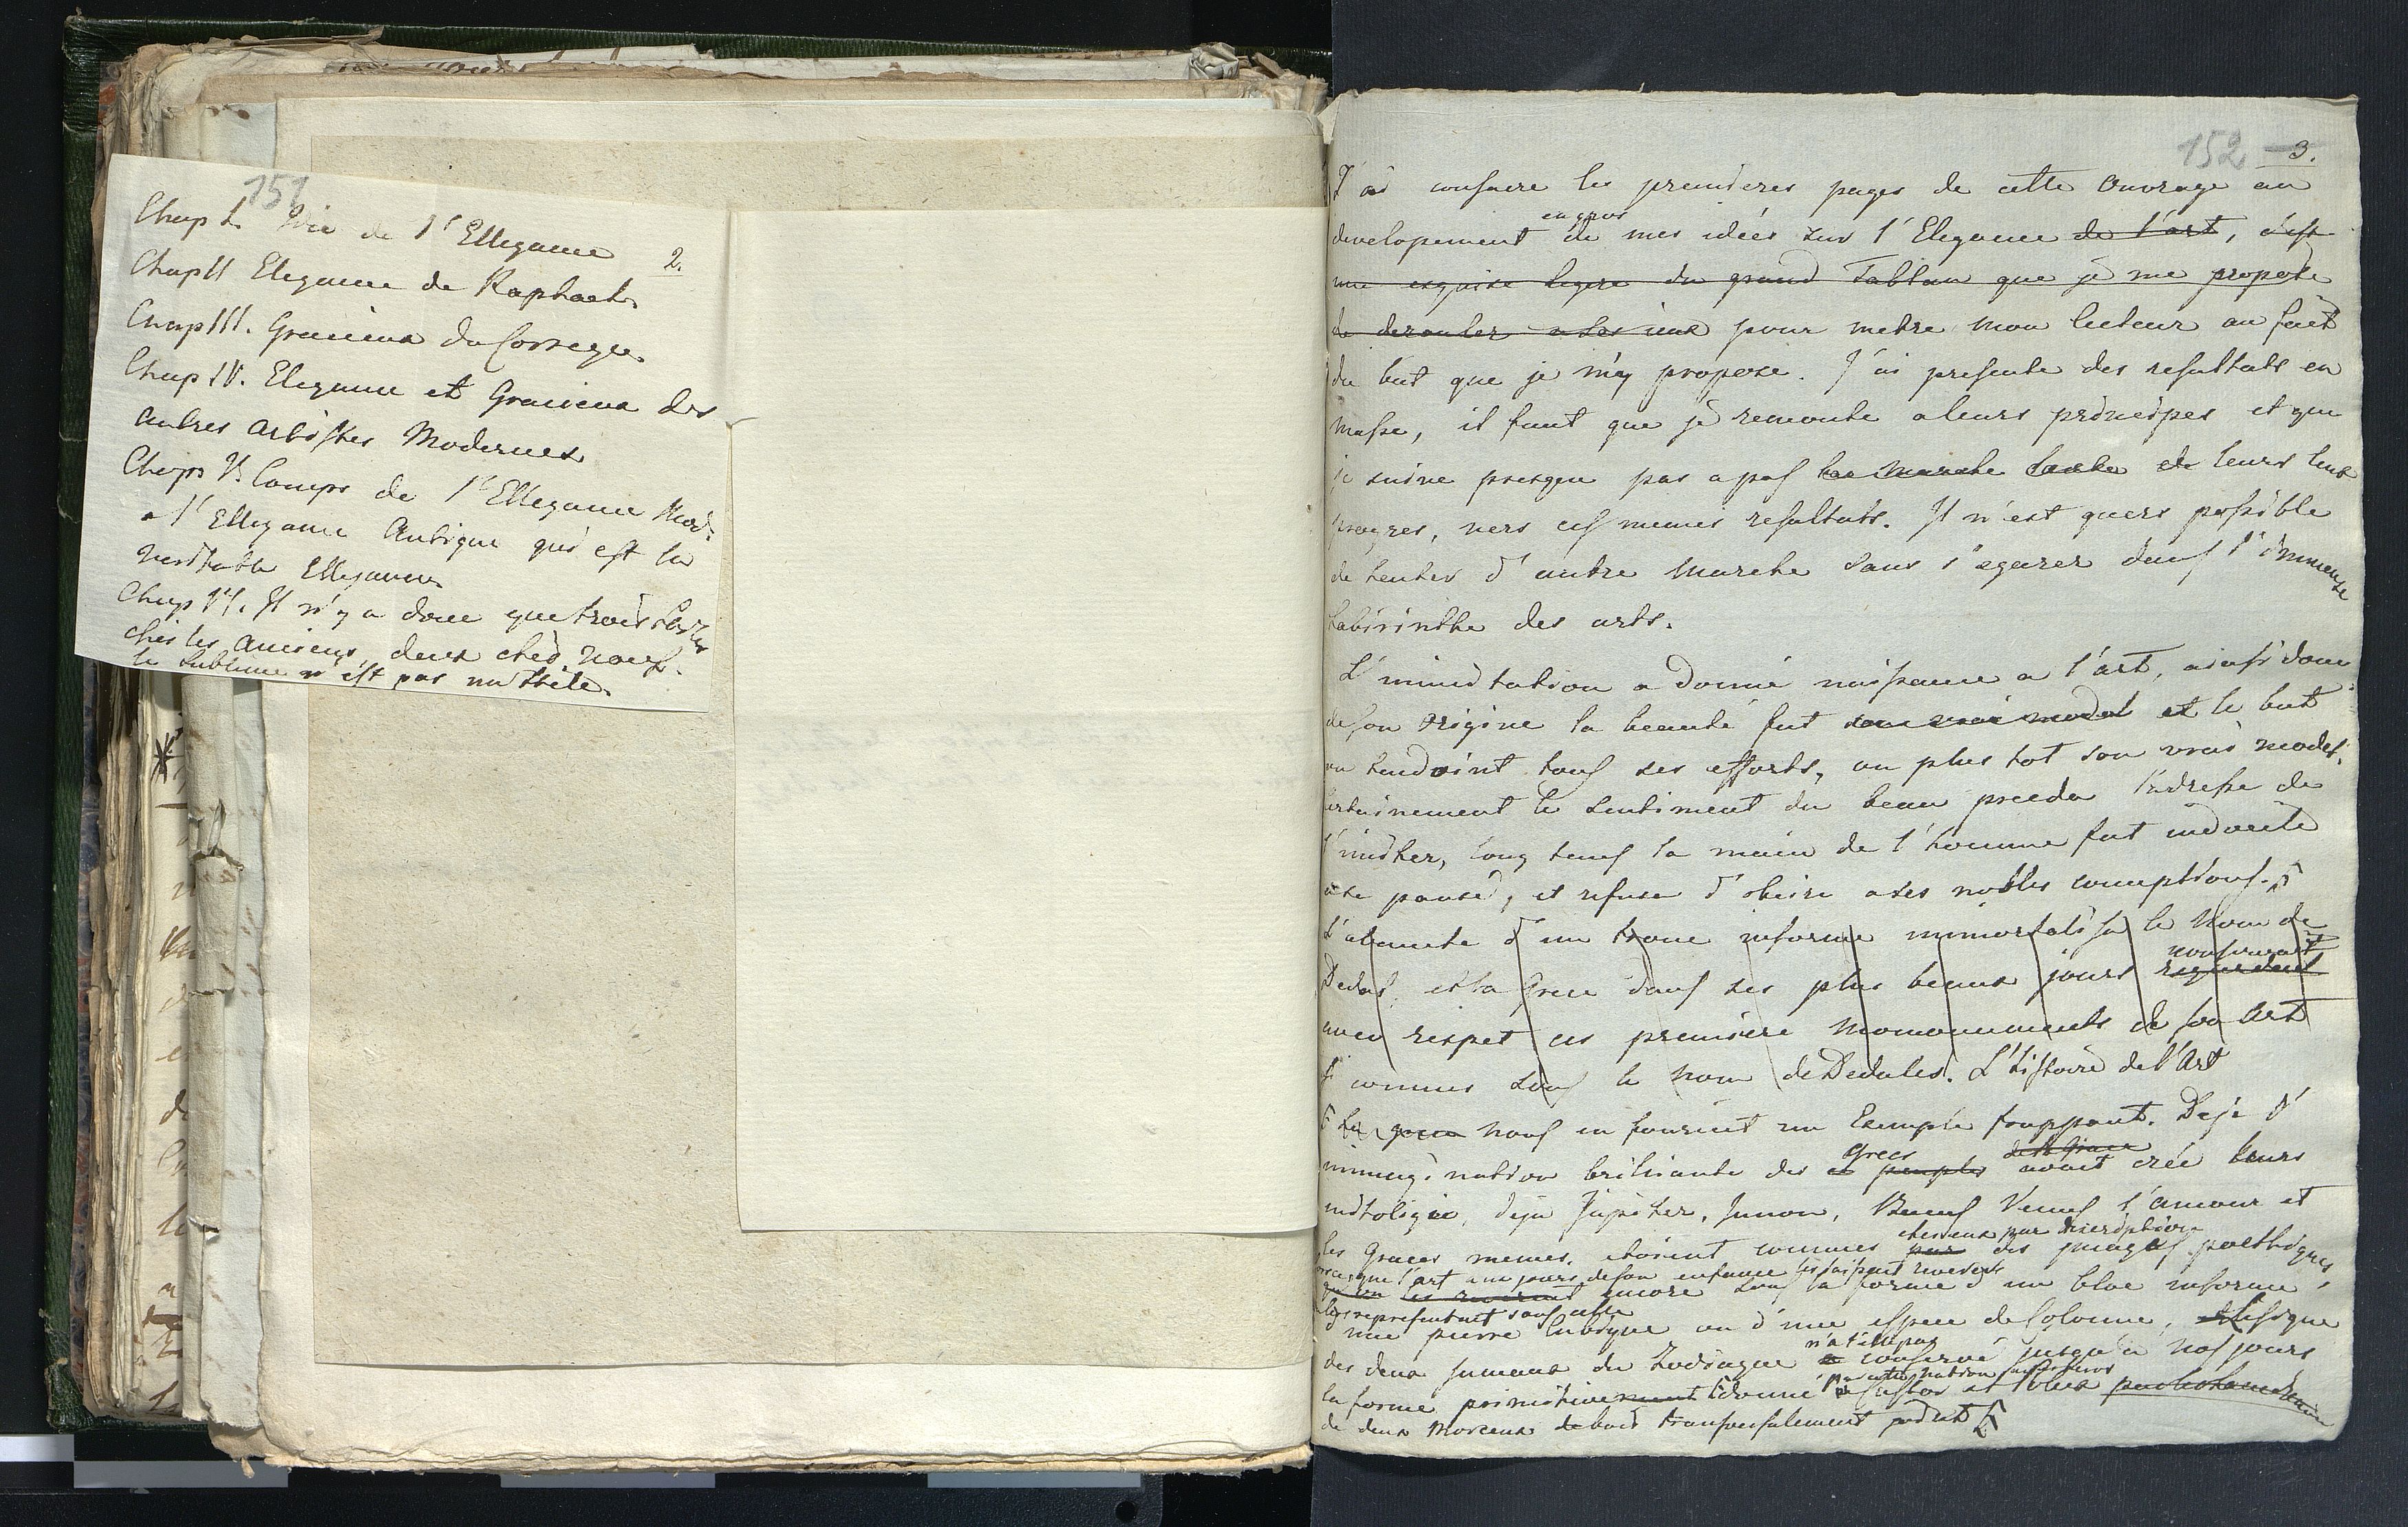 151
Chap I. Idée de l'Ellegance
2.
Chap II Elegance de Raphael.
Chap III. Gracieux du Correge.
Chap IV. Elegance et Gracieux des
autres artistes Modernes
Chap V. Comp. de l'Ellegance Mod.
a l'Ellegance Antique qui est la
veritable Ellegance
Chap VI. Il n'y a donc que trois styles
chés les anciens, deux chés nous.
le sublime n'est pas un stile.
152 3.
J'ai consacre les premieres pages de cette ouvrage au
en gros
developement de mes idées sur l'Elegance de l'art, c'est
une esquise legere du grand Tableau que je me propose
de derouler a ses ieux pour metre mon lecteur au fait
du but que je m'y propose. J'ai presente des resultats en
masse, il faut que je remonte a leurs principes et que
je suive presque pas a pas la marche lente de leurs lens
progres, vers ces memes resultats. Il n'est guere possible
de tenter d'autre marche sans s'egarer dans l'immense
labirinthe des arts.
L'immitation a donné naissance a l'art, ainsi donc
de son origine la beauté fut son vrai model et le but
ou tendoint tous ses efforts, ou plus tot son vrai model.
certainement le sentiment du beau preceda l'adresse de
l'imiter, long tems la main de l'homme fut indocile
a sa pensé, et refusa d'obeire a ses nobles conceptions.
L'ebauche d'un tronc informe immortalisa le nom de
conservoit
Dedal, et la Grece dans ses plus beaux jours regardoit
avec respet ces premiere monouments de son Art
connus sous le nom de Dedales. L'histoire de l'Art
grecs nous en fournit un Exemple frappant. Deja l'
Grecs de la Grece
immagination brillante des ce peuples avoit crée leurs
mitologie, deja Jupiter, Junon, Venus l'amour et
chés eux par discriptions
les Graces memes, etoient connues par des images poethiques,
que l'art aux jours de son enfance les faisoient reverent
qu'on les reveroit encore sous la forme d'un bloc informe
les representoit sous celle
d'une pierre cubique ou d'une espece de Colonne, le signe
n'a t'elle pas
des deux jumeaux du Zodiaque a conservé jusqu'a nos jours
la forme primitivement donné a Castor et Polux
de deux morceaux de bois transversalement